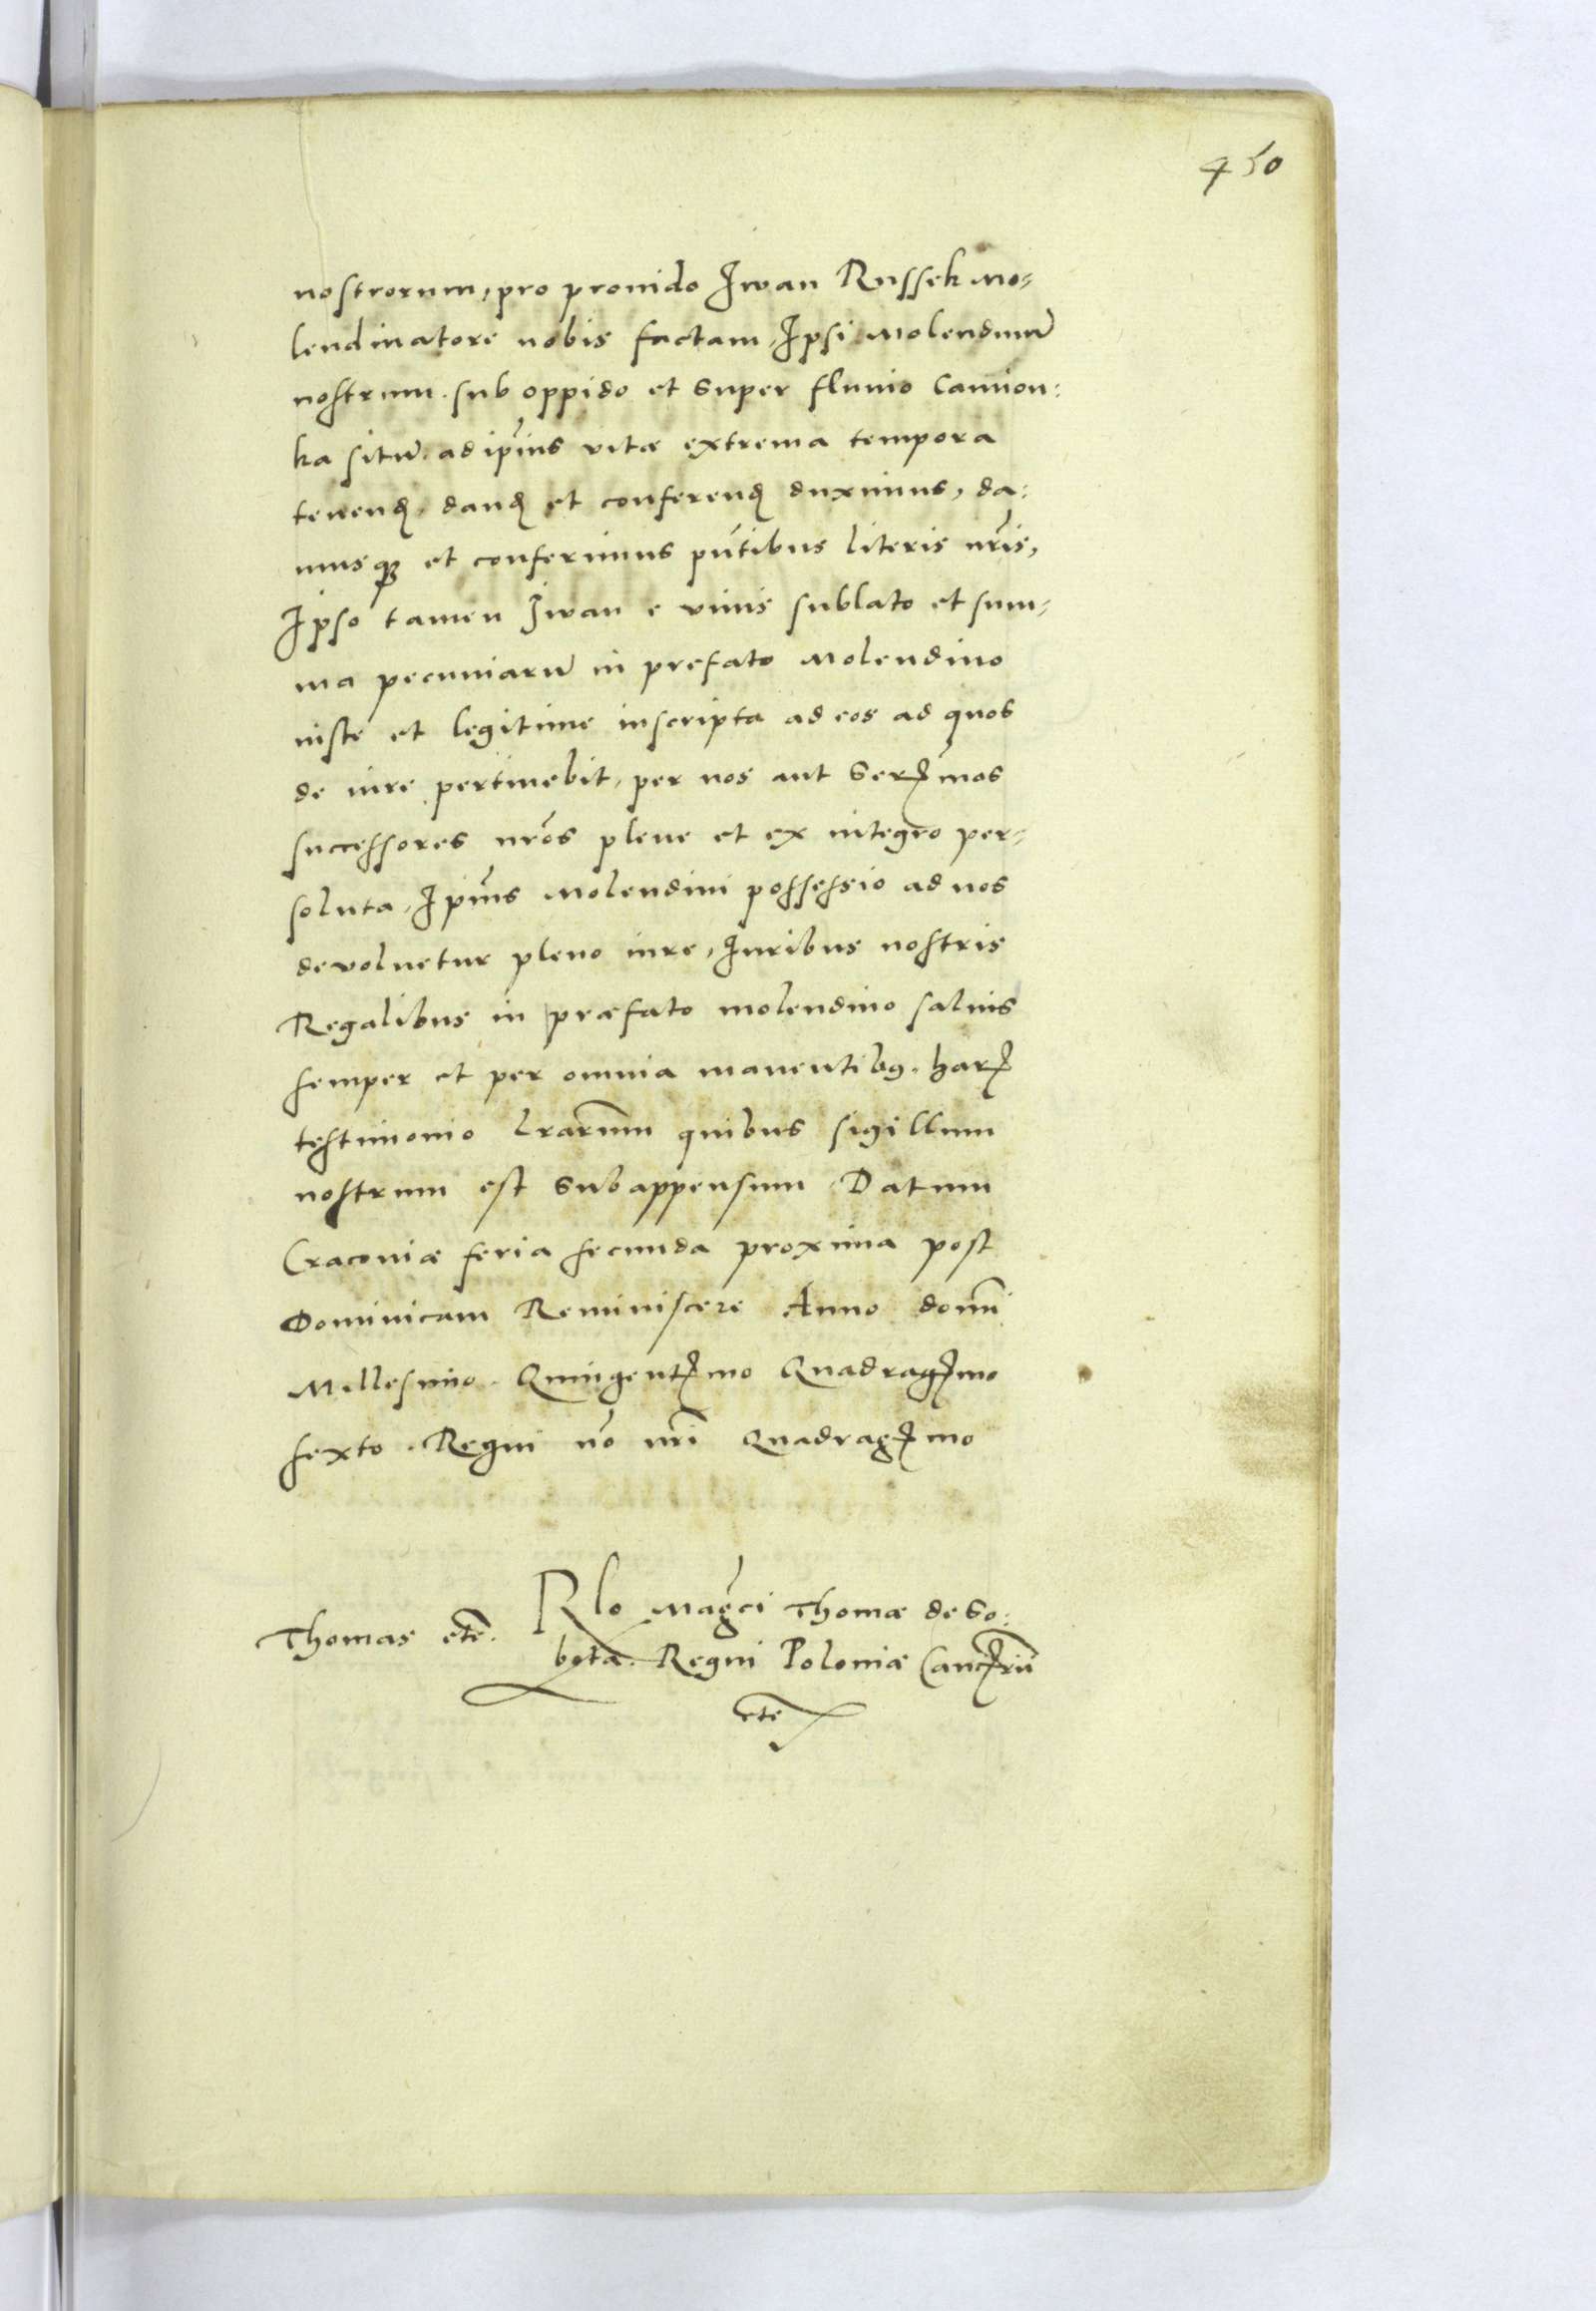 450
nostrorum, pro prouido Iwan Russek Mo-
lendinatore nobis factam, Ipsi Molendinū
nostrum sub oppido et super fluuio Camion:
ka sitū. ad ip̃ius vitæ extrema tempora
tenendꝫ, dandꝫ et conferendꝫ duximus, da:
musqꝫ et conferimus pñtibus literis nr̃is,
Ipso tamen Iwan e viuis sublato et sum-
ma pecuniarū in prefato Molendino
iuste et legitime inscripta ad eos ad quos
de iure pertinebit, per nos aut Serꝫmos
successores nr̃os plene et ex integro per-
soluta, Ip̃ius Molendini possessio ad nos
deuoluetur pleno iure, Iuribus nostris
Regalibus in præfato molendino saluis
semper et per omnia manentibꝰ. harꝫ
testimonio l̃rarum quibus sigillum
nostrum est subappensum. Datum
Cracouiæ feria secunda proxima post
Dominicam Reminiscere Anno dom̃i
Millesimo. Quingentꝫmo Quadragꝫmo
sexto. Regni v̊o nr̃i Quadragꝫmo
Thomas etc̃.
Rlo Mag̃ci Thomæ de So:
bota. Regni Poloniæ Cancꝫrii
etc̃